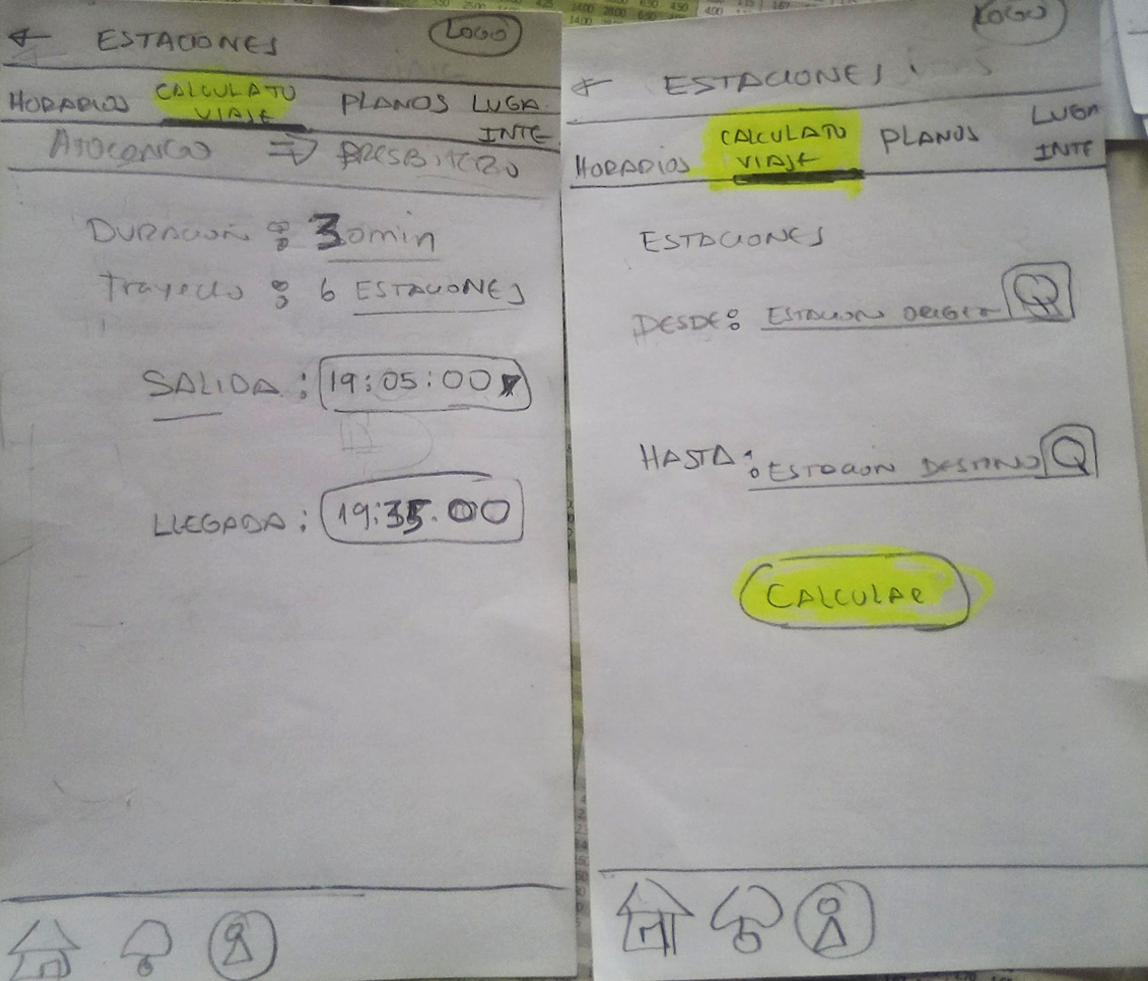 ← ESTACIONES LOGO
HORARIOS CALCULA TU PLANOS LUGA.
VIAJE INTE
ATOCONGO ⇒ PRESBITERO
DURACION : 30min
Trayecto : 6 ESTACIONES
SALIDA : 19:05:00
LLEGADA : 19:35.00
LOGO
← ESTACIONES
HORARIOS CALCULA TU PLANOS LUGA
VIAJE INTE
ESTACIONES
DESDE: ESTACION ORIGEN
HASTA: ESTACION DESTINO
CALCULAR